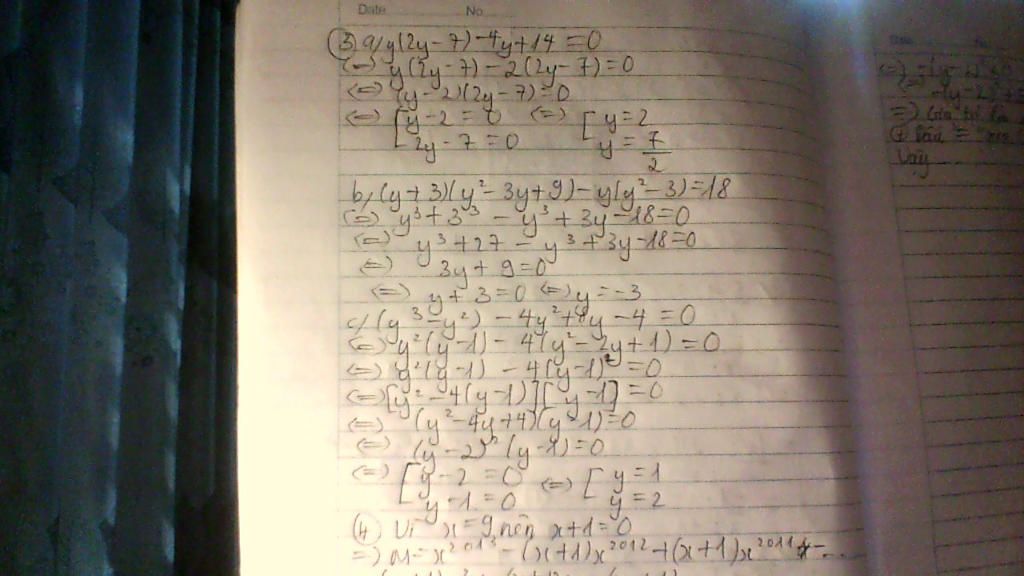 Date No
③ a/ y(2y-7)-4y+14 = 0
(=) y(2y-7) - 2(2y-7)=0
(=) (y-2)(2y-7)=0
(=) [y-2 = 0 (=) [y=2
2y-7 = 0 y = 7/2
b/ (y+3)(y²-3y+9)-y(y²-3)=18
(=) y³+3³ - y³+3y-18=0
(=) y³+27 - y³+3y-18=0
(=) 3y+9=0
(=) y+3=0 (=) y=-3
c/ (y³-y²) - 4y²+8y-4 = 0
(=) y²(y-1) - 4(y²-2y+1) = 0
(=) y²(y-1) - 4(y-1)² = 0
(=) [y²-4(y-1)][y-1] = 0
(=) (y²-4y+4)(y-1)=0
(=) (y-2)²(y-1)=0
(=) [y-2 = 0 (=) [y=1
y-1 = 0 y=2
④ Vì x=9 nên x+1=0
=) M=x²⁰¹³-(x+1)x²⁰¹²+(x+1)x²⁰¹¹-...
Vậy